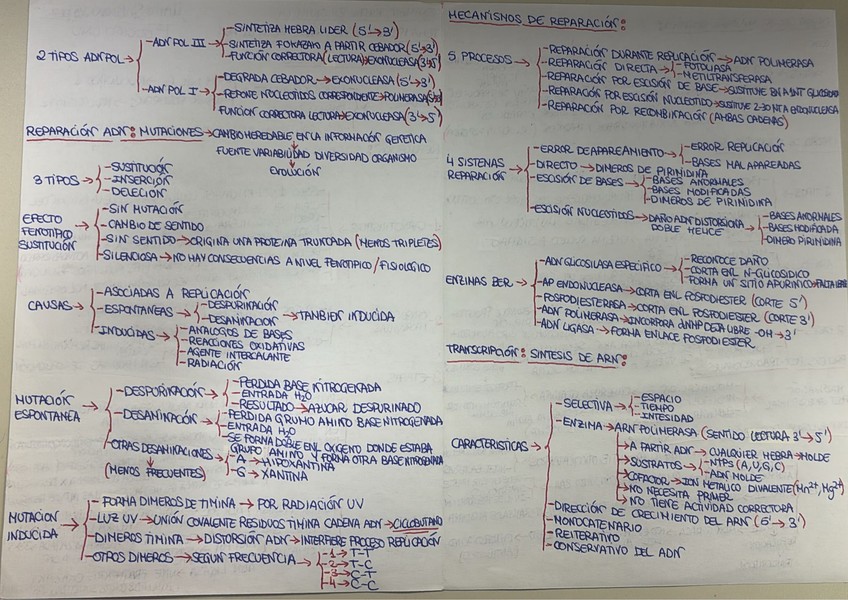 2 TIPOS ADN POL →
-ADN POL III →
-SINTETIZA HEBRA LIDER (5'→3')
-SINTETIZA FOKAZAKO A PARTIR CEBADOR (5'→3')
-FUNCIÓN CORRECTORA (LECTURA)→EXONUCLEASA (3'→5')
-ADN POL I →
-DEGRADA CEBADOR → EXONUCLEASA (5'→3')
-REPONE NUCLEOTIDOS CORRESPONDIENTE→POLIMERASA
FUNCION CORRECTORA LECTURA→EXONUCLEASA (3'→5')
REPARACIÓN ADN: MUTACIONES → CAMBIO HEREDABLE EN LA INFORMACIÓN GENETICA
FUENTE VARIABILIDAD DIVERSIDAD ORGANISMO
EVOLUCIÓN
3 TIPOS →
-SUSTITUCIÓN
-INSERCIÓN
-DELECIÓN
EFECTO FENOTIPICO SUSTITUCIÓN →
-SIN MUTACIÓN
-CAMBIO DE SENTIDO
-SIN SENTIDO → ORIGINA UNA PROTEINA TRUNCADA (MENOS TRIPLETES)
-SILENCIOSA → NO HAY CONSECUENCIAS A NIVEL FENOTIPICO / FISIOLOGICO
CAUSAS →
-ASOCIADAS A REPLICACIÓN
-ESPONTANEAS →
-DESPURINACIÓN
-DESAMINACION
→ TAMBIEN INDUCIDA
-INDUCIDAS →
-ANALOGOS DE BASES
-REACCIONES OXIDATIVAS
-AGENTE INTERCALANTE
-RADIACIÓN
MUTACIÓN ESPONTANEA →
-DESPURINACIÓN →
-PERDIDA BASE NITROGENADA
-ENTRADA H2O
-RESULTADO → AZUCAR DESPURINADO
-DESAMINACIÓN →
-PERDIDA GRUPO AMINO BASE NITROGENADA
-ENTRADA H2O
-SE FORMA DOBLE ENL OXIGENO DONDE ESTABA
GRUPO AMINO Y FORMA OTRA BASE NITROGENADA
-OTRAS DESAMINACIONES →
(MENOS FRECUENTES)
-A → HIPOXANTINA
-G → XANTINA
MUTACION INDUCIDA →
-FORMA DIMEROS DE TIMINA → POR RADIACIÓN UV
-LUZ UV → UNIÓN COVALENTE RESIDUOS TIMINA CADENA ADN → CICLOBUTANO
-DIMEROS TIMINA → DISTORSIÓN ADN → INTERFIERE PROCESO REPLICACIÓN
-OTROS DIMEROS → SEGUN FRECUENCIA →
-1 → T-T
-2 → T-C
-3 → C-T
-4 → C-C
MECANISMOS DE REPARACIÓN:
5 PROCESOS →
-REPARACIÓN DURANTE REPLICACIÓN → ADN POLIMERASA
-REPARACIÓN DIRECTA →
-FOTOLIASA
-METILTRANSFERASA
-REPARACIÓN POR ESCISIÓN DE BASE → SUSTITUYE BN
-REPARACIÓN POR ESCISIÓN NUCLEOTIDO → SUSTITUYE 2-30 NT
-REPARACIÓN POR RECOMBINACIÓN (AMBAS CADENAS)
4 SISTEMAS REPARACIÓN →
-ERROR DE APAREAMIENTO →
-ERROR REPLICACIÓN
-BASES MAL APAREADAS
-DIRECTO → DIMEROS DE PIRIMIDINA
-ESCISIÓN DE BASES →
-BASES ANORMALES
-BASES MODIFICADAS
-DIMEROS DE PIRIMIDINA
-ESCISIÓN NUCLEOTIDOS → DAÑO ADN DISTORSIONA
DOBLE HELICE →
-BASES ANORMALES
-BASES MODIFICADA
-DIMERO PIRIMIDINA
ENZIMAS BER →
-ADN GLUCOSILASA ESPECIFICO →
-RECONOCE DAÑO
-CORTA ENL N-GLUCOSIDICO
-FORMA UN SITIO APURINICO→FALTA BASE
-AP ENDONUCLEASA → CORTA ENL FOSFODIESTER (CORTE 5')
-FOSFODIESTERASA → CORTA ENL FOSFODIESTER (CORTE 3')
-ADN POLIMERASA → INCORPORA dNMP DEJA LIBRE -OH → 3'
-ADN LIGASA → FORMA ENLACE FOSFODIESTER
TRANSCRIPCIÓN: SINTESIS DE ARN:
CARACTERISTICAS →
-SELECTIVA →
-ESPACIO
-TIEMPO
-INTESIDAD
-ENZIMA → ARN POLIMERASA (SENTIDO LECTURA 3'→5')
→A PARTIR ADN → CUALQUIER HEBRA → MOLDE
→SUSTRATOS →
-NTPS (A,U,G,C)
-ADN MOLDE
→COFACTOR → ION METALICO DIVALENTE (Mn2+, Mg2+)
→NO NECESITA PRIMER
→NO TIENE ACTIVIDAD CORRECTORA
-DIRECCIÓN DE CRECIMIENTO DEL ARN (5'→3')
-MONOCATENARIO
-REITERATIVO
-CONSERVATIVO DEL ADN